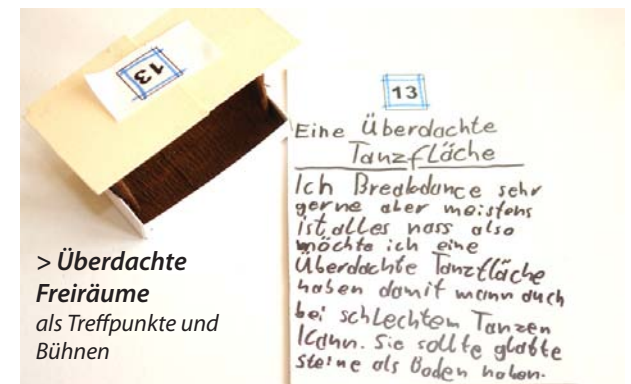 13
> Überdachte
Freiräume
als Treffpunkte und
Bühnen
13
Eine Überdachte
Tanzfläche
Ich Breakdance sehr
gerne aber meistens
ist alles nass also
möchte ich eine
Überdachte Tanzfläche
haben damit mann auch
bei schlechtem Tanzen
Kann. Sie sollte glatte
steine als Boden haben.